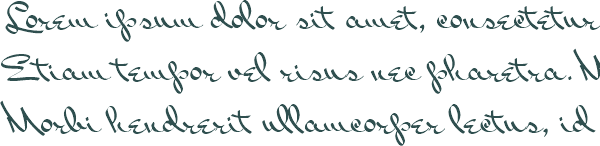 Lorem ipsum dolor sit amet, consectetur
Etiam tempor vel risus nec pharetra. N
Morbi hendrerit ullamcorper lectus, id